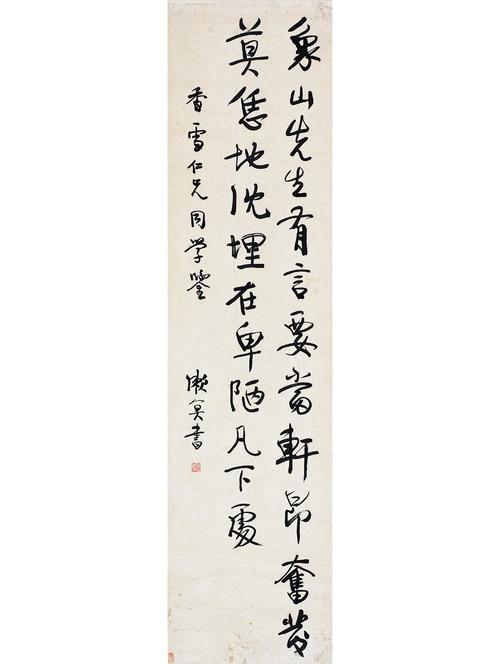 象山先生有言要當軒昂奮發
莫恁地沈埋在卑陋凡下處
香雪仁兄同學鑒
漱冥書